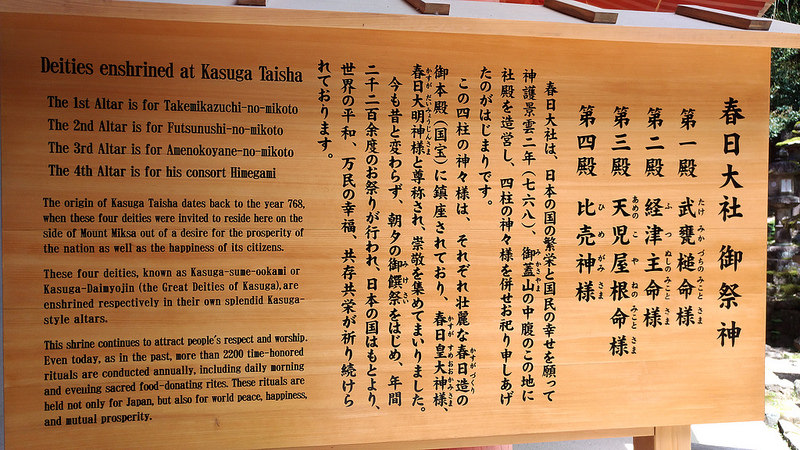 春日大社 御祭神
第一殿 武甕槌命様
たけ みか づちのみこと さま
第二殿 経津主命様
ふ つ ぬしのみこと さま
第三殿 天児屋根命様
あめの こ や ねのみこと さま
第四殿 比売神様
ひ め がみ さま
春日大社は、日本の国の繁栄と国民の幸せを願って
神護景雲二年(七六八)、御蓋山の中腹のこの地に
みかさやま
社殿を造営し、四柱の神々様を併せお祀り申しあげ
たのがはじまりです。
この四柱の神々様は、それぞれ壮麗な春日造の
かすがづくり
御本殿(国宝)に鎮座されており、春日皇大神様、
かすが すめおおかみさま
春日大明神様と尊称され、崇敬を集めてまいりました。
かすが だいみょうじんさま
今も昔と変わらず、朝夕の御饌祭をはじめ、年間
みけさい
二千二百余度のお祭りが行われ、日本の国はもとより、
世界の平和、万民の幸福、共存共栄が祈り続けら
れております。
Deities enshrined at Kasuga Taisha
The 1st Altar is for Takemikazuchi-no-mikoto
The 2nd Altar is for Futsunushi-no-mikoto
The 3rd Altar is for Amenokoyane-no-mikoto
The 4th Altar is for his consort Himegami
The origin of Kasuga Taisha dates back to the year 768,
when these four deities were invited to reside here on the
side of Mount Miksa out of a desire for the prosperity of
the nation as well as the happiness of its citizens.
These four deities, known as Kasuga-sume-ookami or
Kasuga-Daimyojin (the Great Deities of Kasuga), are
enshrined respectively in their own splendid Kasuga-
style altars.
This shrine continues to attract people's respect and worship.
Even today, as in the past, more than 2200 time-honored
rituals are conducted annually, including daily morning
and evening sacred food-donating rites. These rituals are
held not only for Japan, but also for world peace, happiness,
and mutual prosperity.